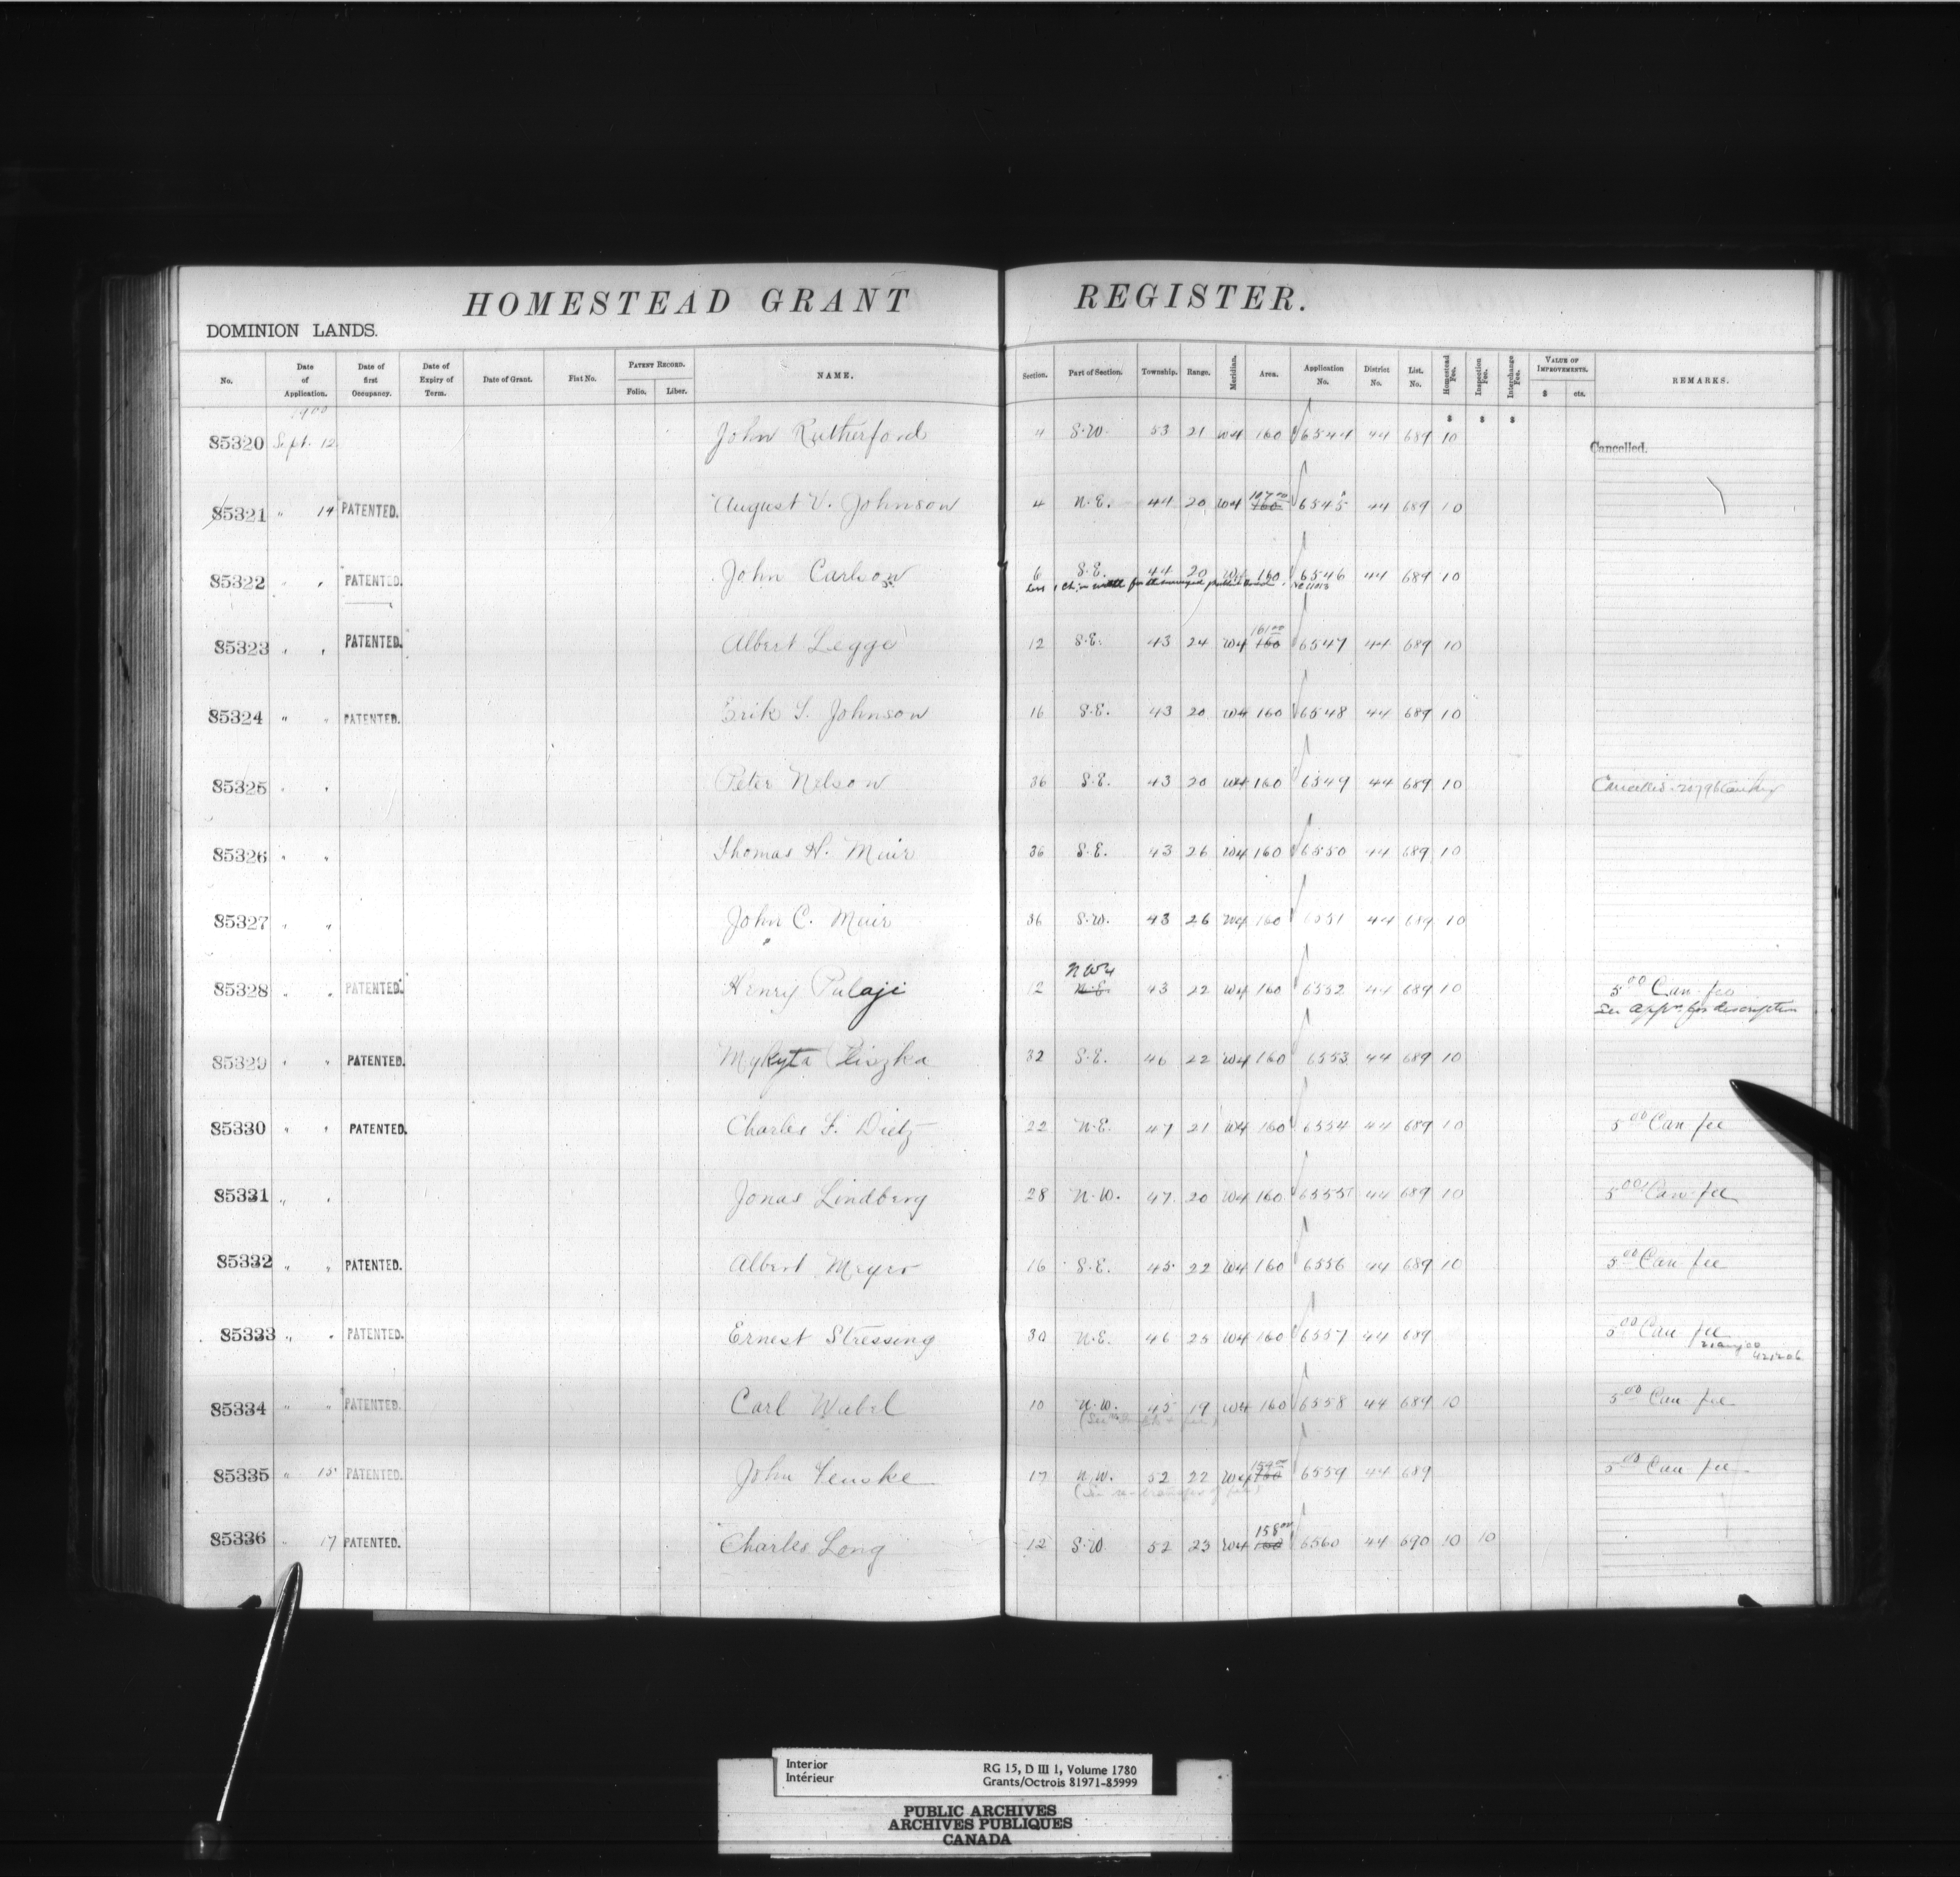 HOMESTEAD GRANT REGISTER.
DOMINION LANDS.
No. Date of Application. Date of first Occupancy. Date of Expiry of Term. Date of Grant. Fiat No. PATENT RECORD. Folio. Liber. NAME. Section. Part of Section. Township. Range. Meridian. Area. Application No. District No. List. No. Homestead Fee. Inspection Fee. Interchange Fee. VALUE OF IMPROVEMENTS. $ cts. REMARKS.
1900
$ $ $
85320 Sept. 12 John Rutherford 4 S.W. 53 21 W4 160 6544 44 689 10 Cancelled.
85321 " 14 PATENTED. August V. Johnson 4 N.E. 44 20 W4 160 6545 44 689 10
85322 " " PATENTED. John Carlson 6 S.E. 44 20 W4 160 6546 44 689 10
161.00
85323 " " PATENTED. Albert Legge 12 S.E. 43 24 W4 160 6547 44 689 10
85324 " " PATENTED. Erik S. Johnson 16 S.E. 43 20 W4 160 6548 44 689 10
85325 " " Peter Nelson 36 S.E. 43 20 W4 160 6549 44 689 10 Cancelled
85326 " " Thomas H. Muir 36 S.E. 43 26 W4 160 6550 44 689 10
85327 " " John C. Muir 36 S.W. 43 26 W4 160 6551 44 689 10
NW4
85328 " " PATENTED. Henry Palaji 12 N.E. 43 22 W4 160 6552 44 689 10 5.00 Can fee
See appn for description
85329 " " PATENTED. Mykyta 32 S.E. 46 22 W4 160 6553 44 689 10
85330 " " PATENTED. Charles F. Dietz 22 N.E. 47 21 W4 160 6554 44 689 10 5.00 Can fee
85331 " " Jonas Lindberg 28 N.W. 47 20 W4 160 6555 44 689 10 5.00 Can fee
85332 " " PATENTED. Albert Meyer 16 S.E. 45 22 W4 160 6556 44 689 10 5.00 Can fee
85333 " " PATENTED. Ernest Stressing 30 N.E. 46 25 W4 160 6557 44 689 5.00 Can fee
85334 " " PATENTED. Carl Wabel 10 N.W. 45 19 W4 160 6558 44 689 10 5.00 Can fee
154.00
85335 " 15 PATENTED. John Fenske 17 N.W. 52 22 W4 160 6559 44 689 5.00 Can fee
158.00
85336 " 17 PATENTED. Charles Long 12 S.W. 52 23 W4 160 6560 44 690 10 10
Interior RG 15, D III 1, Volume 1780
Intérieur Grants/Octrois 81971-85999
PUBLIC ARCHIVES
ARCHIVES PUBLIQUES
CANADA